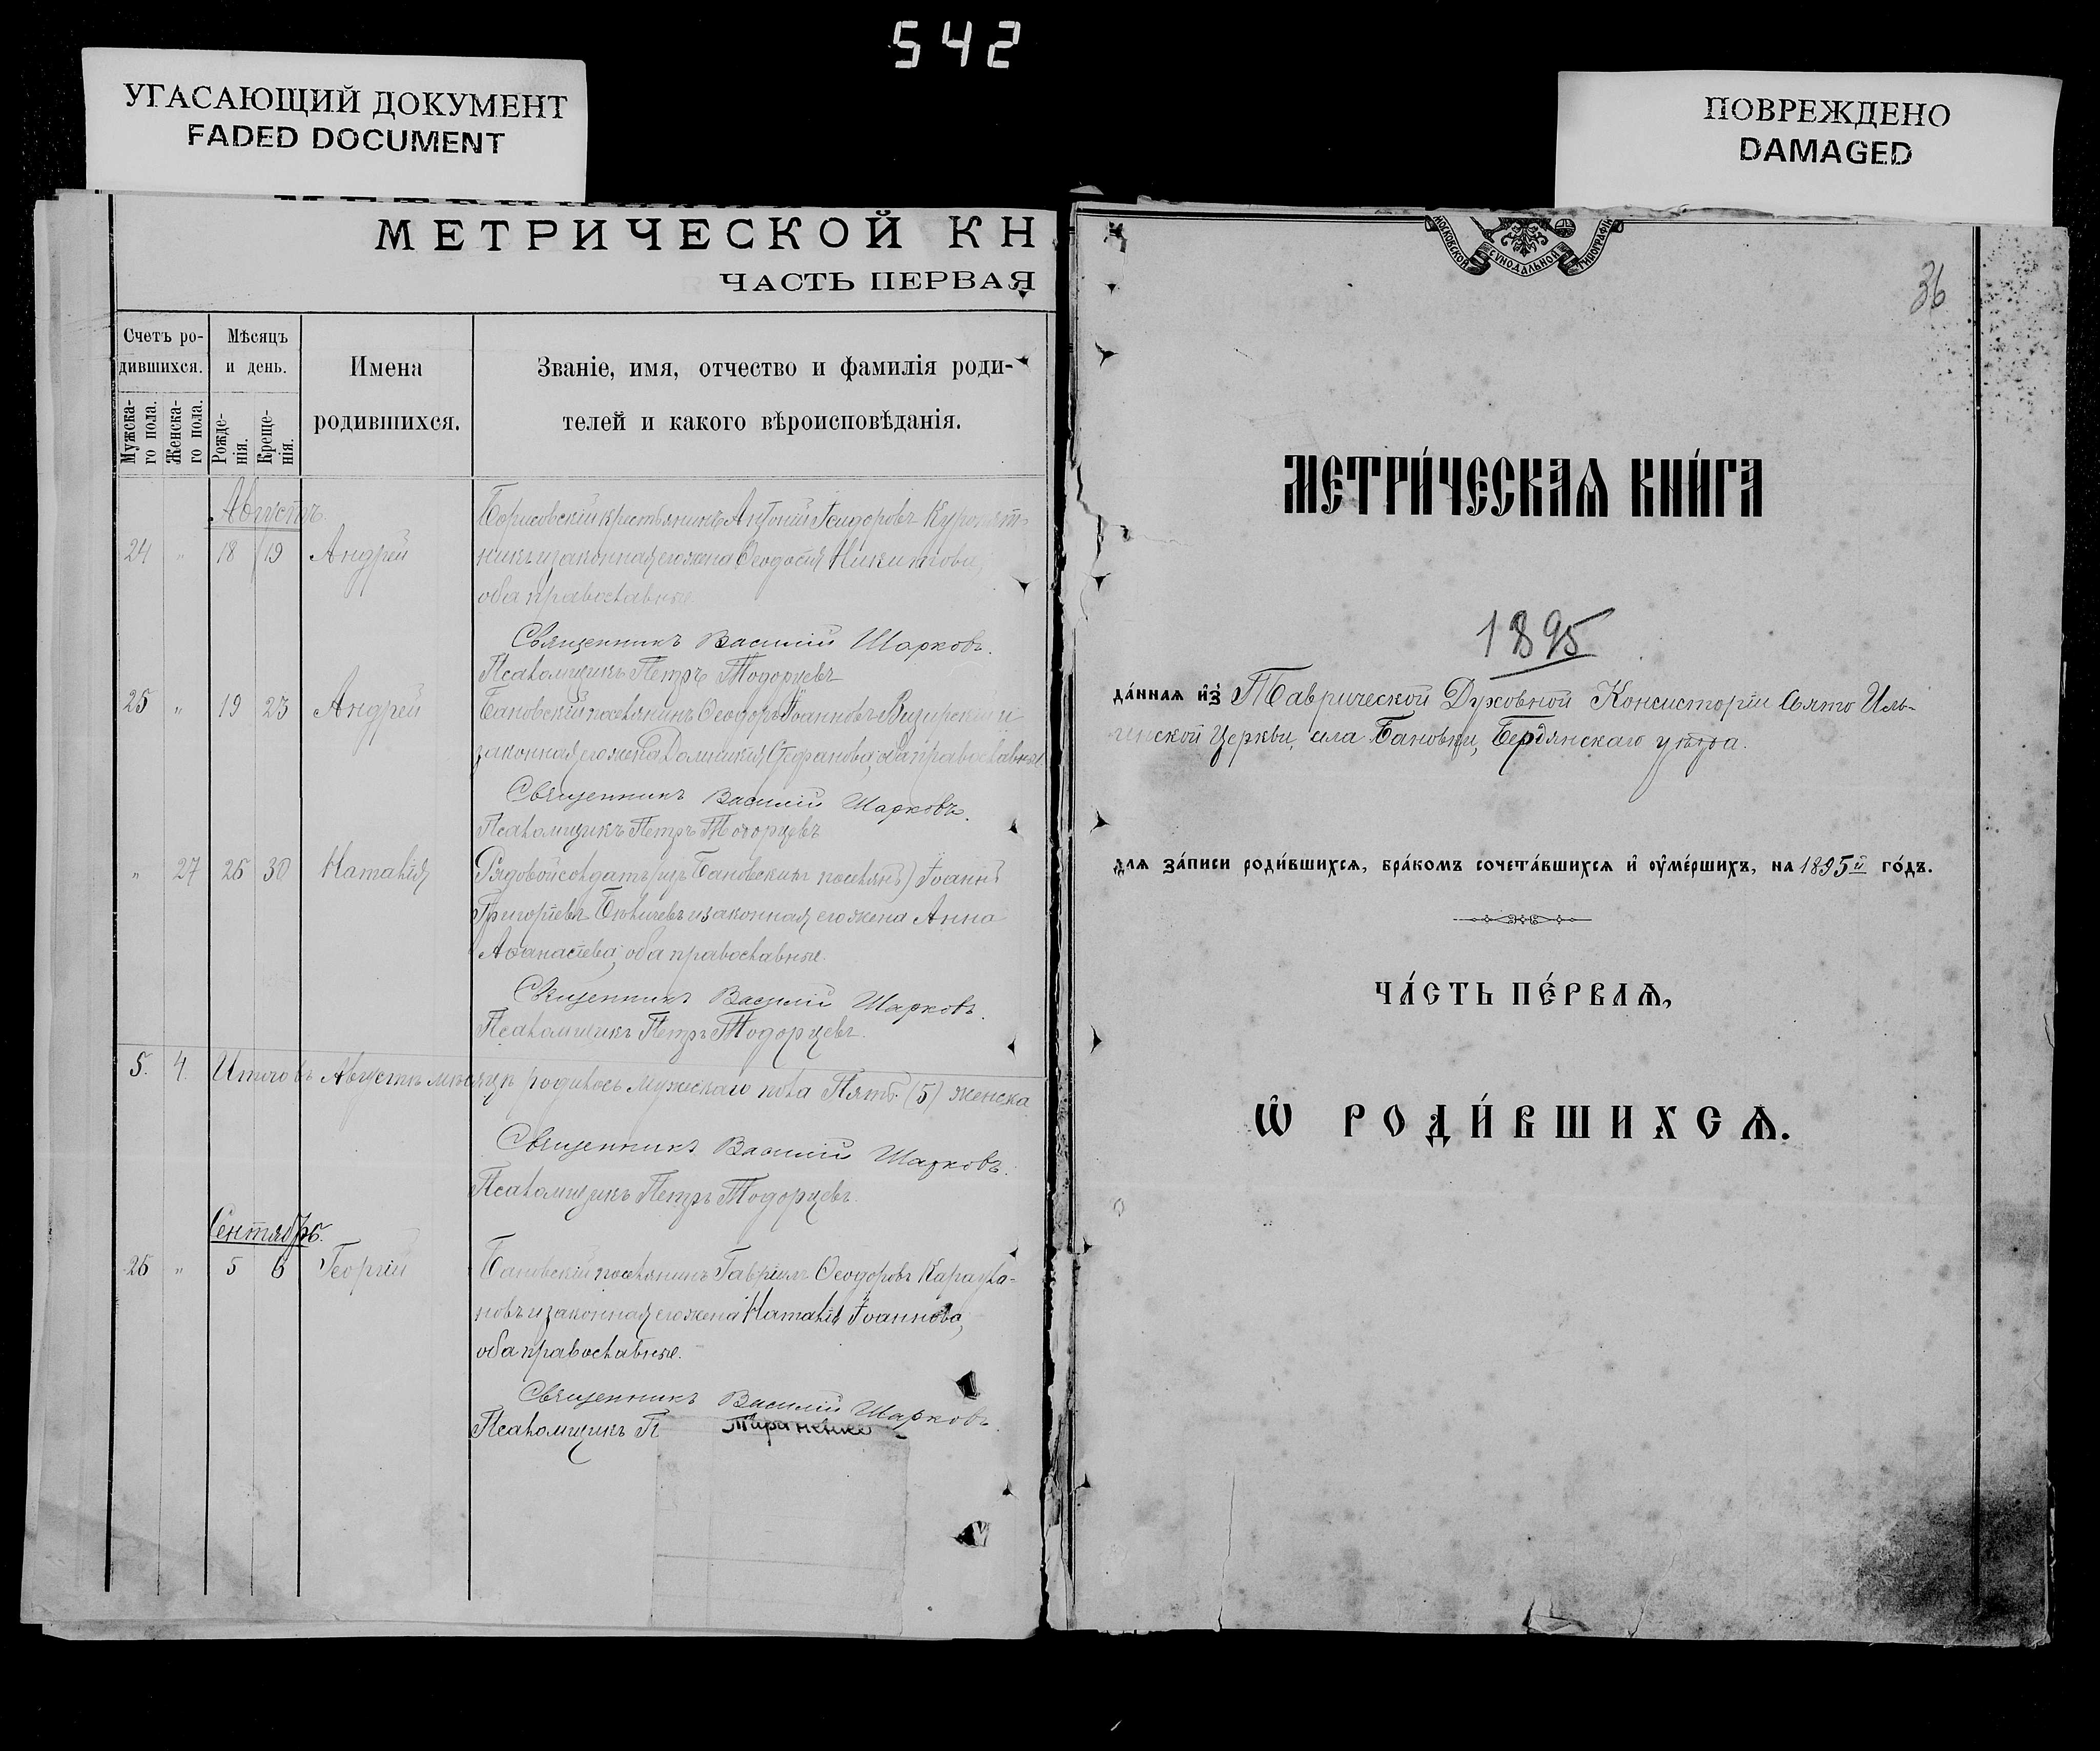 542
УГАСАЮЩИЙ ДОКУМЕНТ
FADED DOCUMENT
ПОВРЕЖДЕНО
DAMAGED
МЕТРИЧЕСКОЙ КН
ЧАСТЬ ПЕРВАЯ
Счетъ ро-
дившихся.
Мужска-
го пола.
Женска-
го пола.
Мѣсяцъ
и день.
Рожде-
нія.
Креще-
нія.
Имена
родившихся.
Званіе, имя, отчество и фамилія роди-
телей и какого вѣроисповѣданія.
Августъ
24 " 18 19 Андрей
Борисовскій крестьянинъ Антоній Исидоровъ
никъ и законная его жена Ѳеодосія Никитова,
оба православные
Священникъ Василій Шарковъ.
Псаломщикъ Петръ Тодорцевъ
25 " 19 23 Андрей
Бановскій поселянинъ Ѳеодоръ Іоанновъ Визирскій и
законная его жена Домникія Стефанова, оба православные
Священникъ Василій Шарковъ.
Псаломщикъ Петръ Тодорцевъ
" 27 26 30 Наталія
Рядовой солдатъ (изъ Бановскихъ поселянъ) Іоаннъ
Григоріевъ и законная его жена Анна
Аѳанасіева, оба православные.
Священникъ Василій Шарковъ.
Псаломщикъ Петръ Тодорцевъ.
5. 4. Итого въ Августѣ мѣсяцѣ родилось мужескаго пола Пять (5) женска
Священникъ Василій Шарковъ.
Псаломщикъ Петръ Тодорцевъ.
Сентябрь.
26 " 5 6 Георгій
Бановскій поселянинъ Гавріилъ Ѳеодоровъ Караула-
новъ и законная его жена Наталія Іоаннова,
оба православные.
Священникъ Василій Шарковъ.
Псаломщикъ П
МОСКОВСКОЙ СѴНОДАЛЬНОЙ ТИПОГРАФІИ
36
МЕТРИ́ЧЕСКАѦ КНИ́ГА
1895
да́нная и҆з̾ Таврической Духовной Консисторіи Свято Иль-
инской Церкви, села Бановки, Бердянскаго уѣзда.
для за́писи роди́вшихся, бра́комъ сочета́вшихся и҆ ᲂу҆ме́ршихъ, на 1895й го́дъ.
ЧА́СТЬ ПЕ́РВАѦ,
Ѽ РОДИ́ВШИХСѦ.